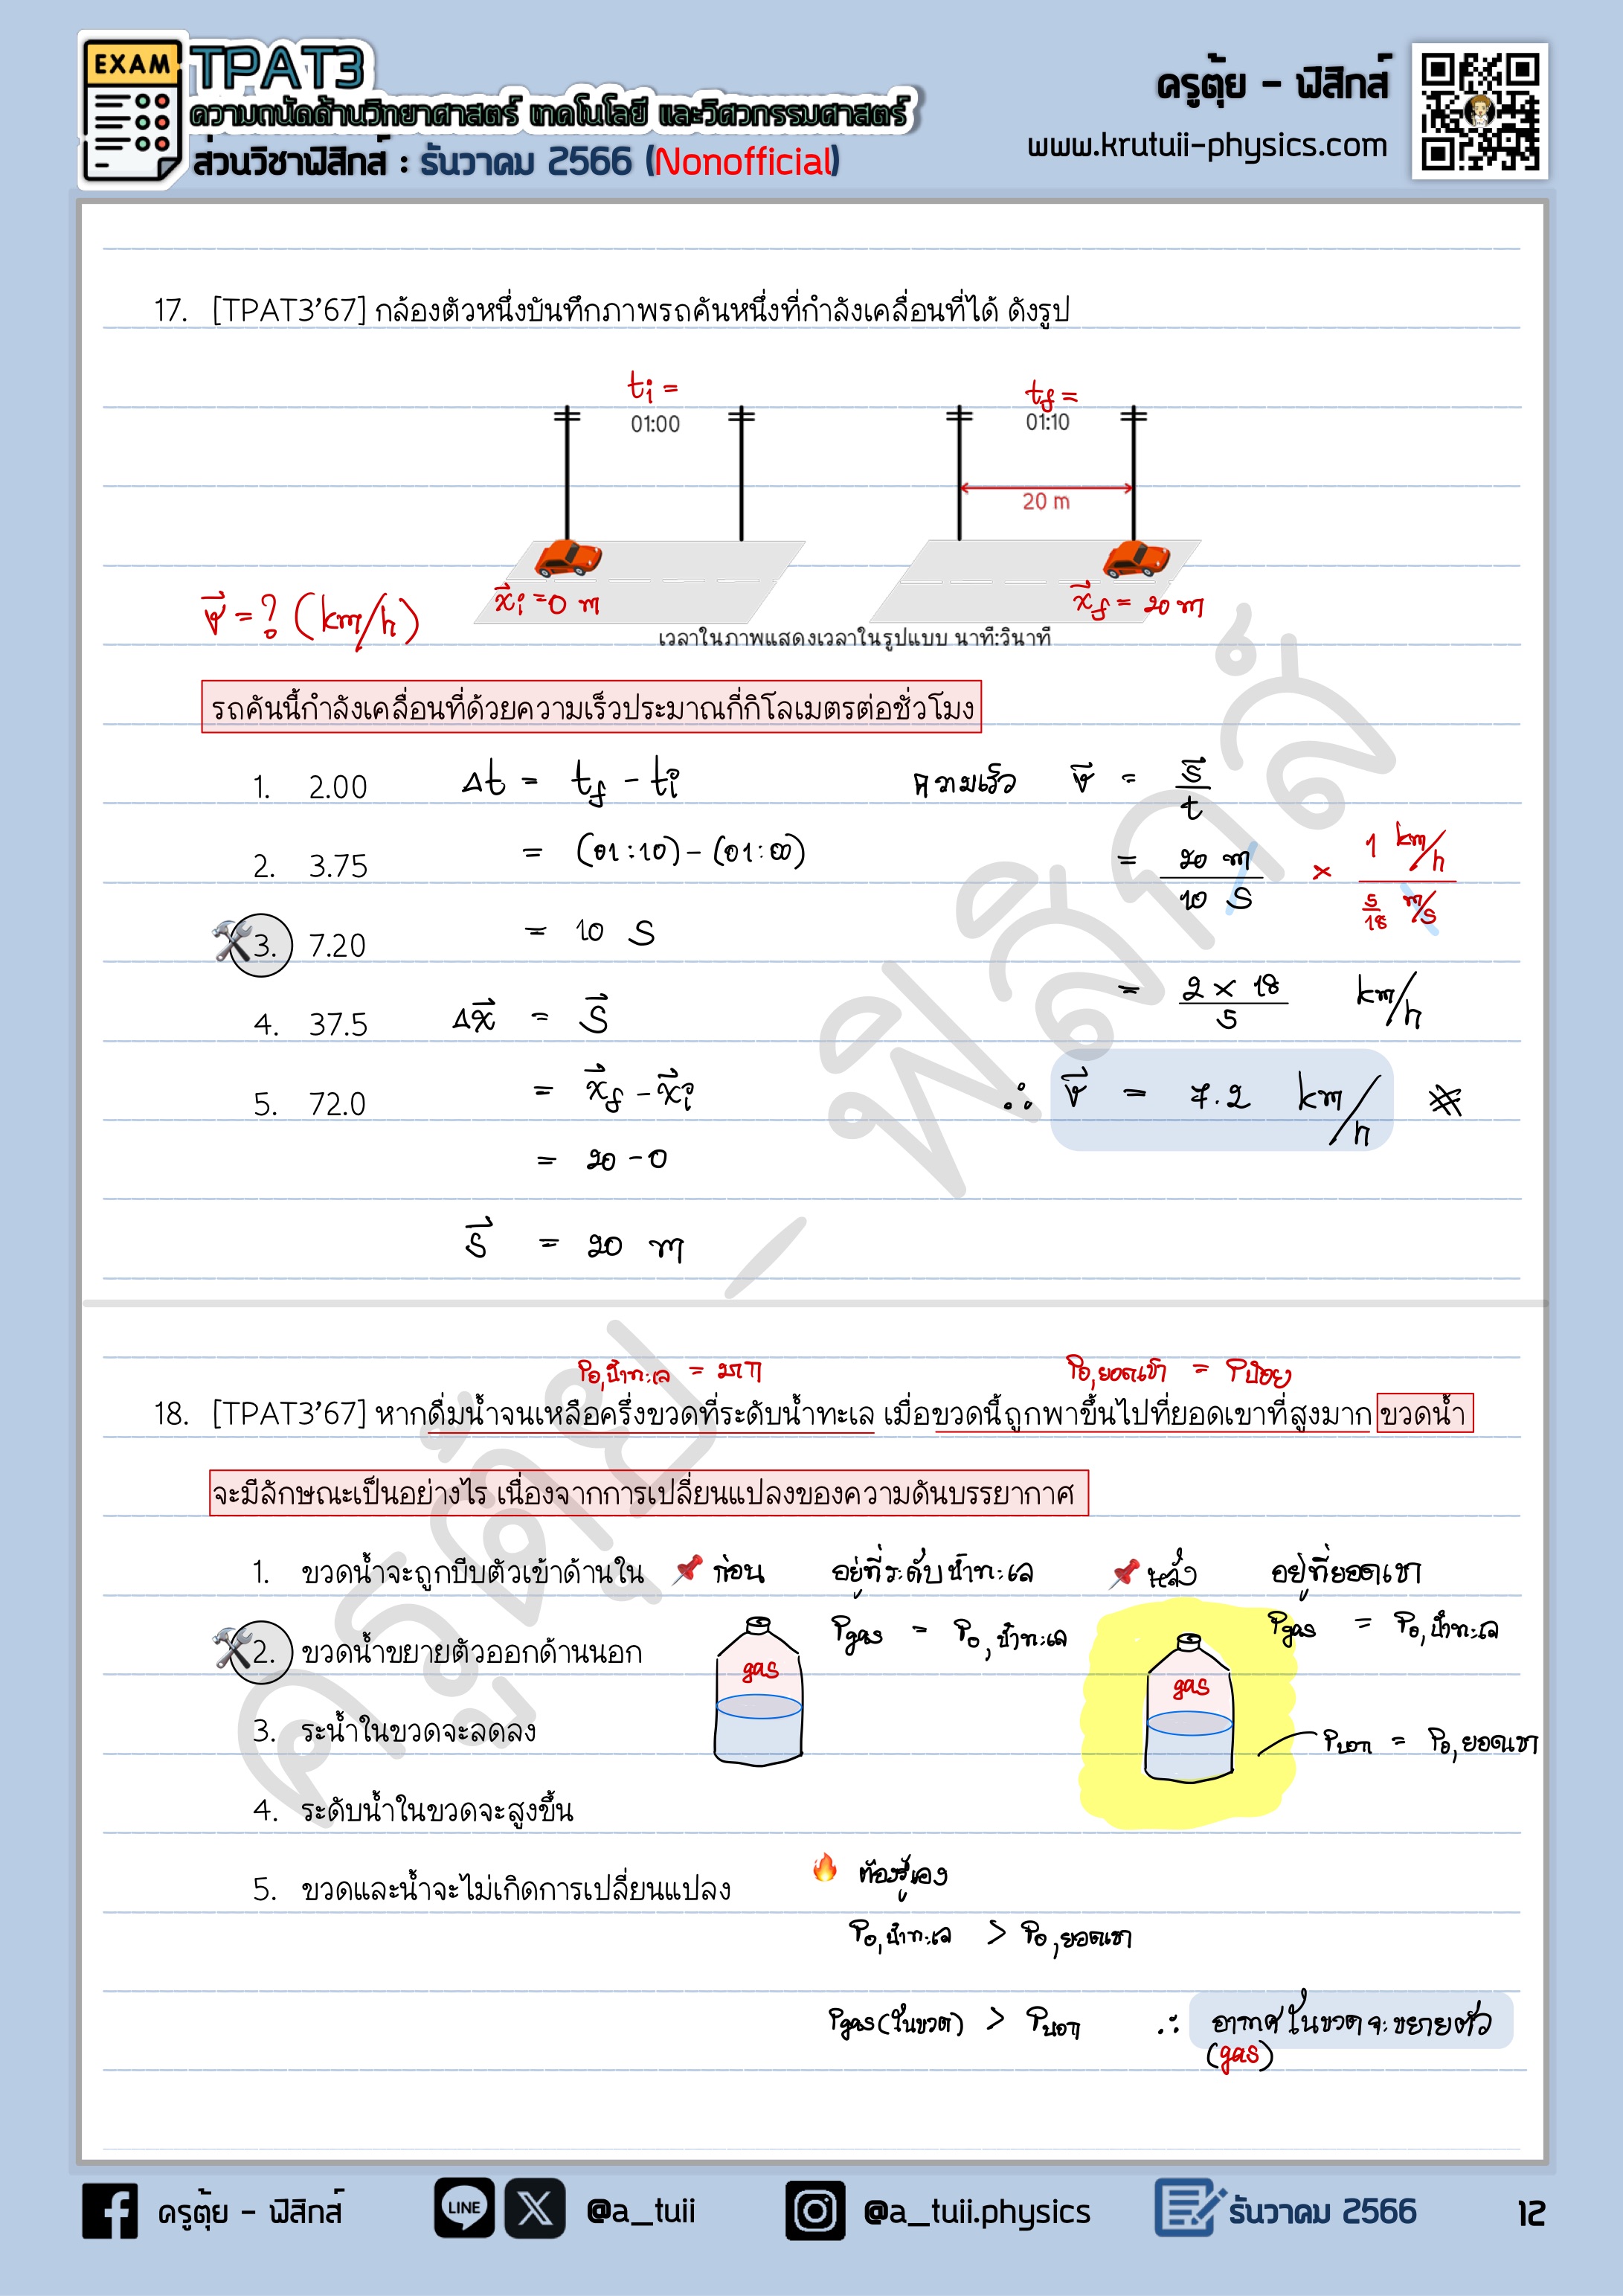 EXAM
TPAT3
ความถนัดด้านวิทยาศาสตร์ เทคโนโลยี และวิศวกรรมศาสตร์
ส่วนวิชาฟิสิกส์ : ธันวาคม 2566 (Nonofficial)
ครูตุ้ย - ฟิสิกส์
www.krutuii-physics.com
17. [TPAT3'67] กล้องตัวหนึ่งบันทึกภาพรถคันหนึ่งที่กำลังเคลื่อนที่ได้ ดังรูป
tᵢ =
01:00
t_f =
01:10
20 m
x⃗ᵢ = 0 m
x⃗_f = 20 m
v⃗ = ? (km/h)
เวลาในภาพแสดงเวลาในรูปแบบ นาที:วินาที
รถคันนี้กำลังเคลื่อนที่ด้วยความเร็วประมาณกี่กิโลเมตรต่อชั่วโมง
1. 2.00
2. 3.75
3. 7.20
4. 37.5
5. 72.0
Δt = t_f - tᵢ
= (01:10) - (01:00)
= 10 s
Δx⃗ = s⃗
= x⃗_f - x⃗ᵢ
= 20 - 0
s⃗ = 20 m
ความเร็ว v⃗ = s⃗/t
= 20 m / 10 s × 1 km/h / 5/18 m/s
= 2 × 18 / 5 km/h
∴ v⃗ = 7.2 km/h #
P₀,น้ำทะเล = มาก
P₀,ยอดเขา = Pน้อย
18. [TPAT3'67] หากดื่มน้ำจนเหลือครึ่งขวดที่ระดับน้ำทะเล เมื่อขวดนี้ถูกพาขึ้นไปที่ยอดเขาที่สูงมาก ขวดน้ำ
จะมีลักษณะเป็นอย่างไร เนื่องจากการเปลี่ยนแปลงของความดันบรรยากาศ
1. ขวดน้ำจะถูกบีบตัวเข้าด้านใน
2. ขวดน้ำขยายตัวออกด้านนอก
3. ระน้ำในขวดจะลดลง
4. ระดับน้ำในขวดจะสูงขึ้น
5. ขวดและน้ำจะไม่เกิดการเปลี่ยนแปลง
ก่อน อยู่ที่ระดับน้ำทะเล
Pgas = P₀,น้ำทะเล
gas
หลัง อยู่ที่ยอดเขา
Pgas = P₀,น้ำทะเล
gas
Pนอก = P₀,ยอดเขา
ต้องรู้เอง
P₀,น้ำทะเล > P₀,ยอดเขา
Pgas (ในขวด) > Pนอก ∴ อากาศในขวดจะขยายตัว
(gas)
ครูตุ้ย - ฟิสิกส์
ครูตุ้ย - ฟิสิกส์
LINE
X
@a_tuii
@a_tuii.physics
ธันวาคม 2566
12